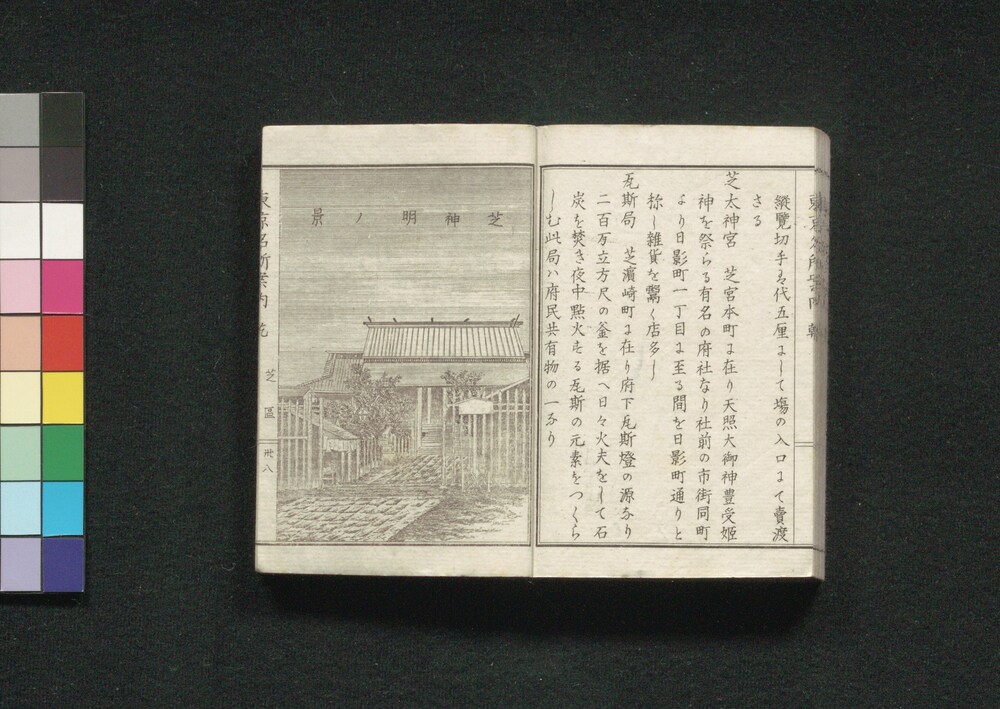 縱覽切手は代五厘にして塲の入口にて賣渡
さる
芝太神宮　芝宮本町に在り天照大御神豊受姬
神を祭らる有名の府社なり社前の市街同町
より日影町一丁目に至る間を日影町通りと
称し雜貨を鬻く店多し
瓦斯局　芝濱崎町に在り府下瓦斯燈の源なり
二百万立方尺の釜を据へ日々火夫をして石
炭を焚き夜中點火する瓦斯の元素をつくら
しむ此局ハ府民共有物の一なり
芝神明ノ景
東京名所案內 乾
芝區
卅八